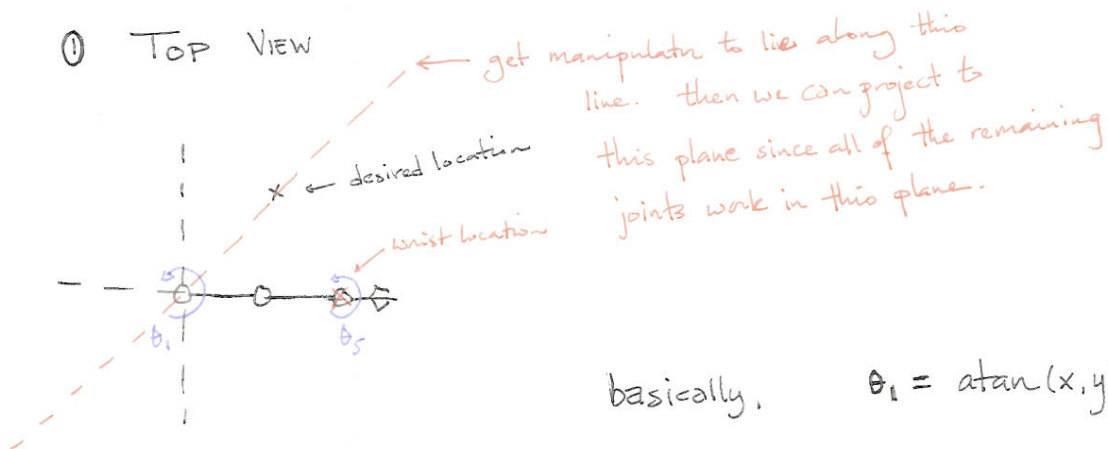 ① TOP VIEW
← get manipulatr to lie along this
line. then we can project to
this plane since all of the remaining
joints work in this plane.
x ← desired location
wrist location
θ₁
θ₅
basically, θ₁ = atan(x,y